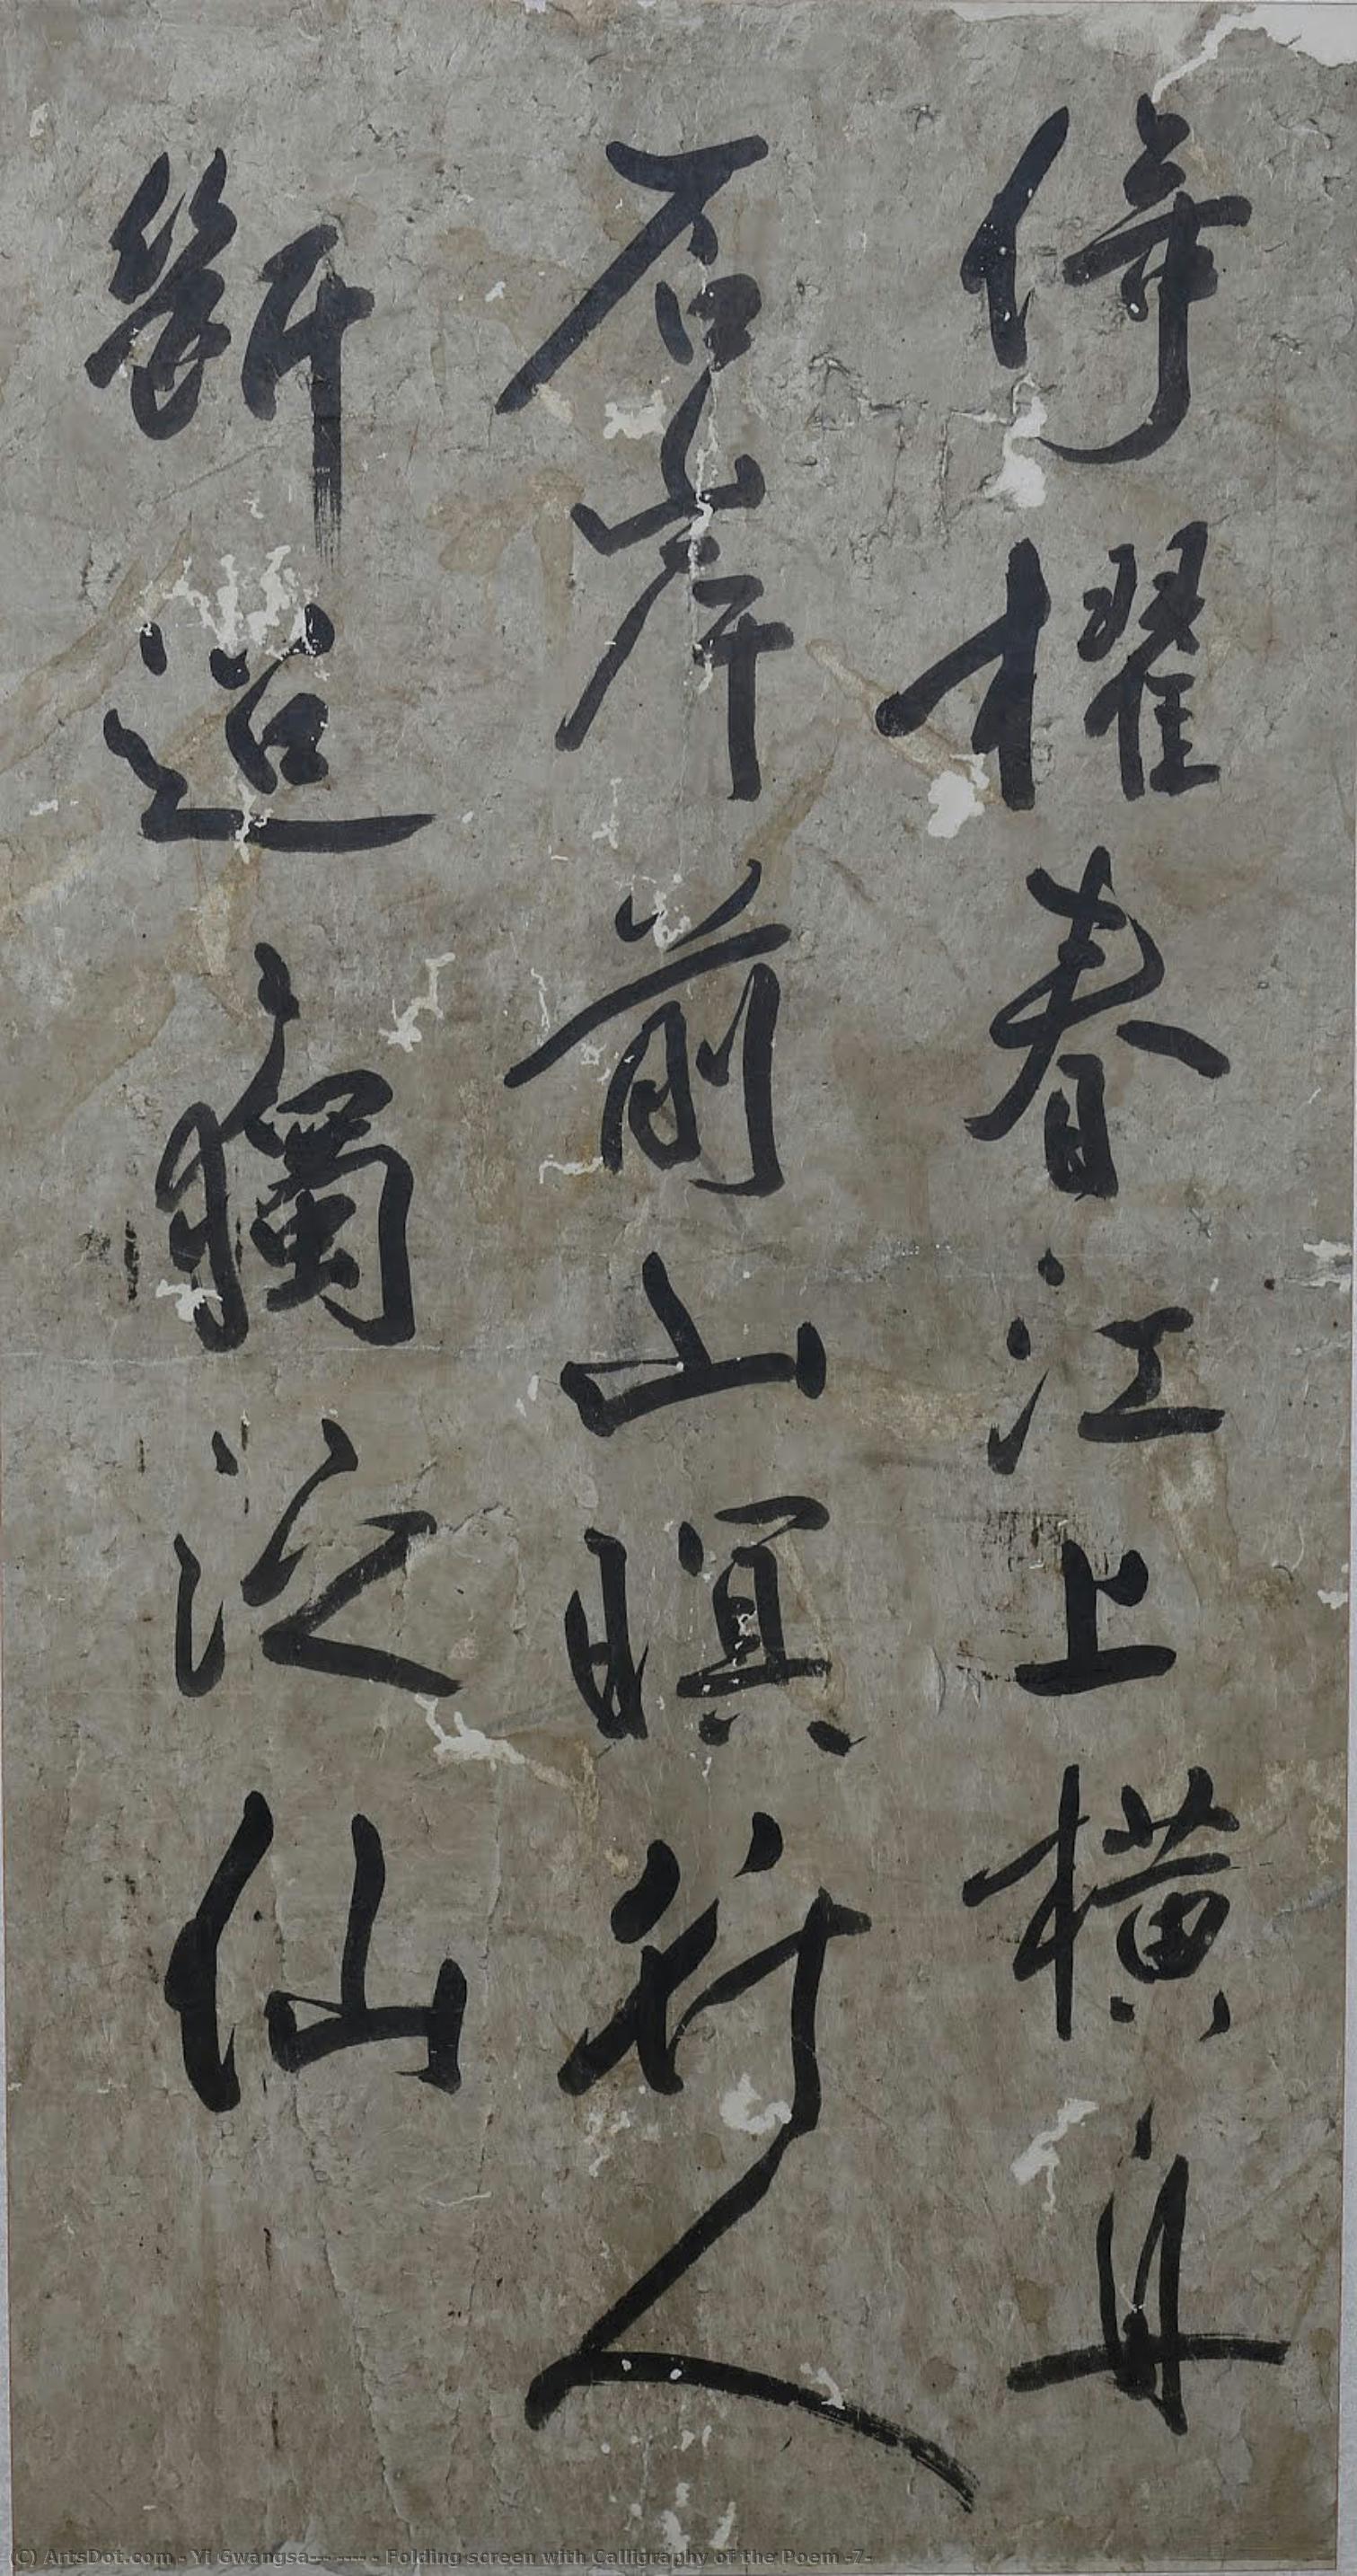 倚櫂春江上橫舟
石岸前山暝行人
斷迢獨泛仙
(C) ArtsDot.com - Yi Gwangsa-- ---- - Folding screen with Calligraphy of the Poem -7-